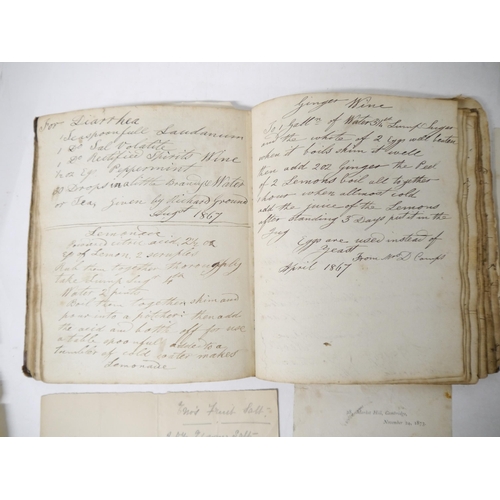 For Diarrhea
1 Teaspoonfull Laudanum
1 Do Sal Volatile
1 Do Rectified Spirits Wine
Peppermint
Drops in a little Brandy & Water
or Tea, given by Richard Ground
Augst 1867
Lemonade
citric acid 2½ oz
of Lemon 2 scruples
Rub them together thoroughly
take Lump Sugr
Water 2 pints
Boil them together skim and
pour into a pitcher then add
the acid and bottle off for use
a table spoonful added to a
tumbler of cold water makes
Lemonade
Ginger Wine
To 2 Galls of Water 3 lb Lump Sugar
and the whole of 2 Eggs well beaten
when it boils skim it well
then add 2oz Ginger the Peel
of 2 Lemons boil all together
1 hour when allmost cold
add the juice of the Lemons
after standing 3 Days put it in the
Jug
Eggs are used instead of
Yeast
From Mrs D Camps
April 1867
Eno's Fruit Salt
Salts
Hill, Coventry,
November 1875